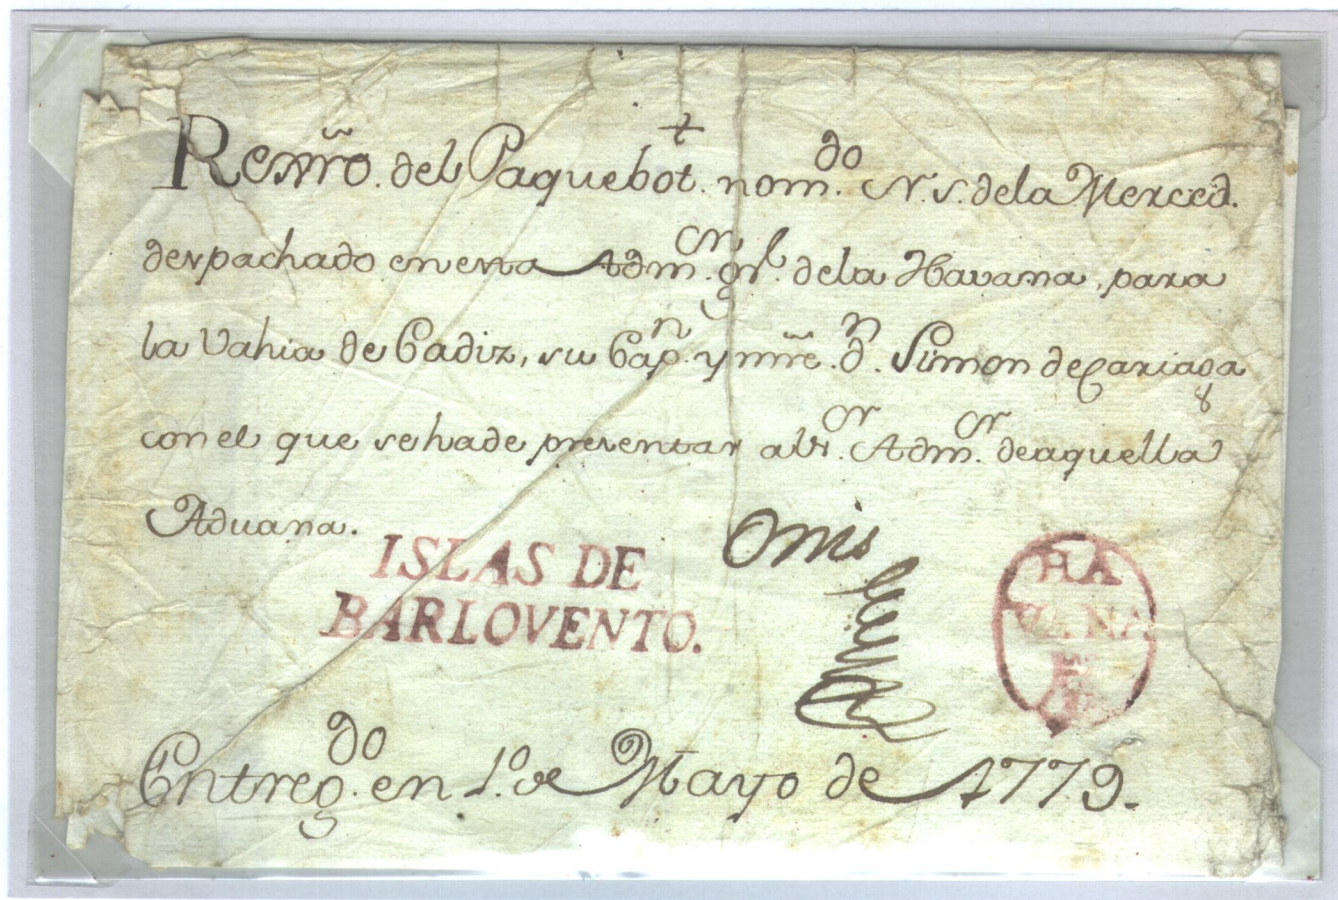 Rexrõ. del Paquebot.t nom.do N. S. dela Merced.
despachado en esta Adm.on gr.l dela Havana, para
la Vahia de Cadiz, su Cap.n y mrẽ. d.n Simon de Cariaga
con el que se ha de presentar al sr. Adm.or de aquella
Aduana.
ISLAS DE
BARLOVENTO.
Onis
HA
VANA
Entreg.do en 1.o de Mayo de 1779.